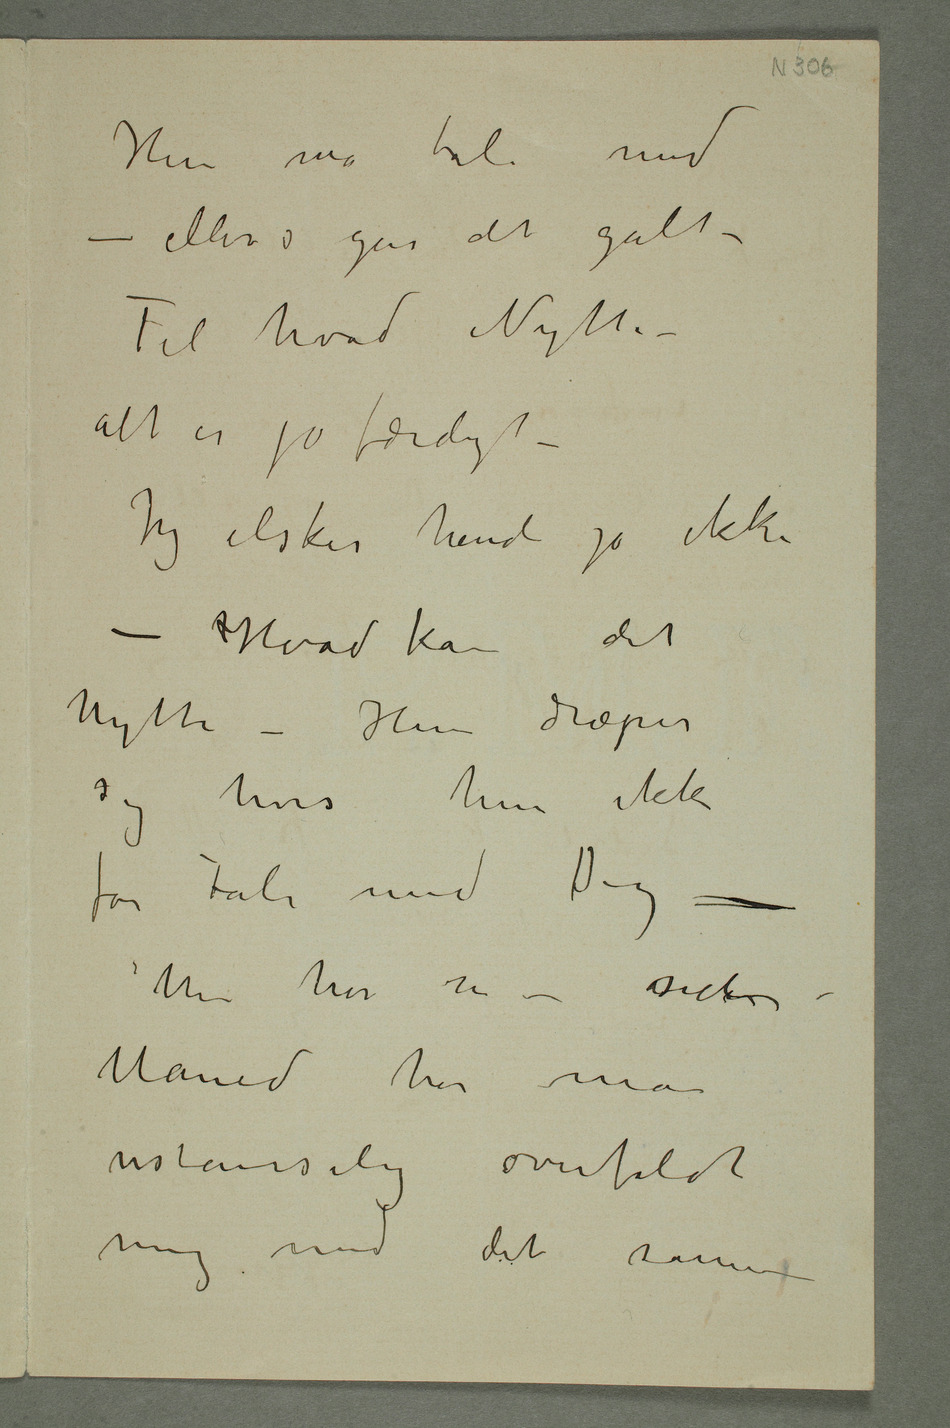 N 306
Hun må tale med
– ellers går det galt –
Til hvad Nytte –
alt er jo færdigt –
Jeg elsker hende jo ikke
– Hvad kan det
nytte – Hun dræper
sig hvis hun ikke
får Tale med Dig —
Nu har – –
Måned har man
ustanselig overfaldt
mig med det samme